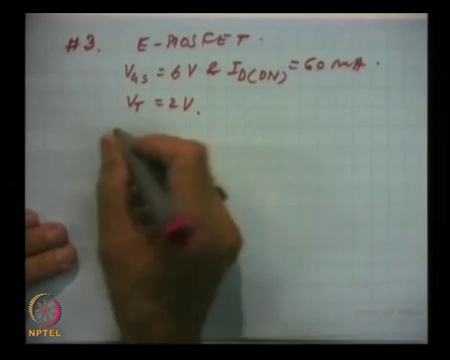 #3. E-MOSFET.
VGS = 6 V & ID(ON) = 60 mA.
VT = 2 V.
NPTEL